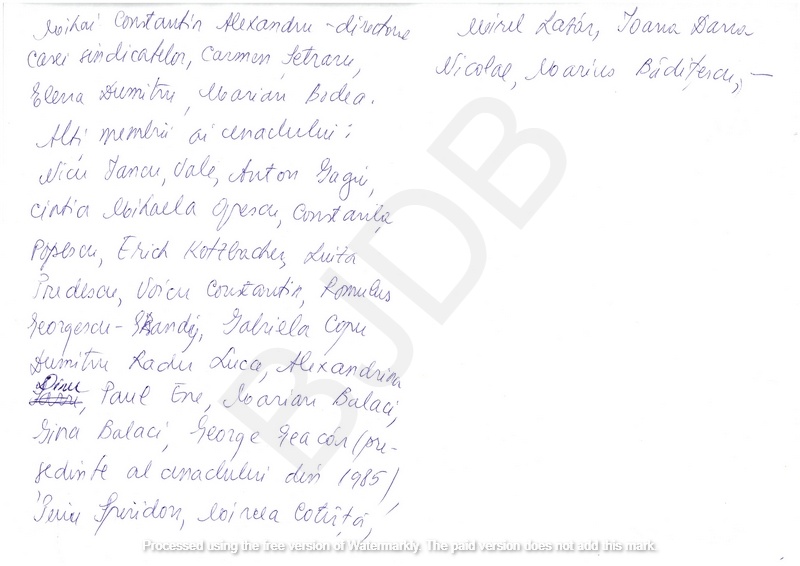 Mihai Constantin Alexandru - directorul
casei sindicatelor, Carmen Setraru,
Elena Dumitru, Marian Bodea.
Alti membrii ai cenaclului:
Nicu Iancu, Vale, Anton Gagiu,
Cintia Mihaela Oprescu, Constanța
Popescu, Erich Kotzbacher, Luita
Predescu, Voicu Constantin, Romulus
Georgescu - Gabriela Copu
Dumitru Radu Luca, Alexandrina
Dinu, Paul Ene, Marian Balaci,
Gina Balaci, George Geacăr (pre-
sedinte al cenaclului din 1985),
Spiridon, Mircea Cotîrță,
Mirel Lazăr, Ioana Dana
Nicolae, Marius Bădițescu, —
BJDB
Processed using the free version of Watermarkly. The paid version does not add this mark.